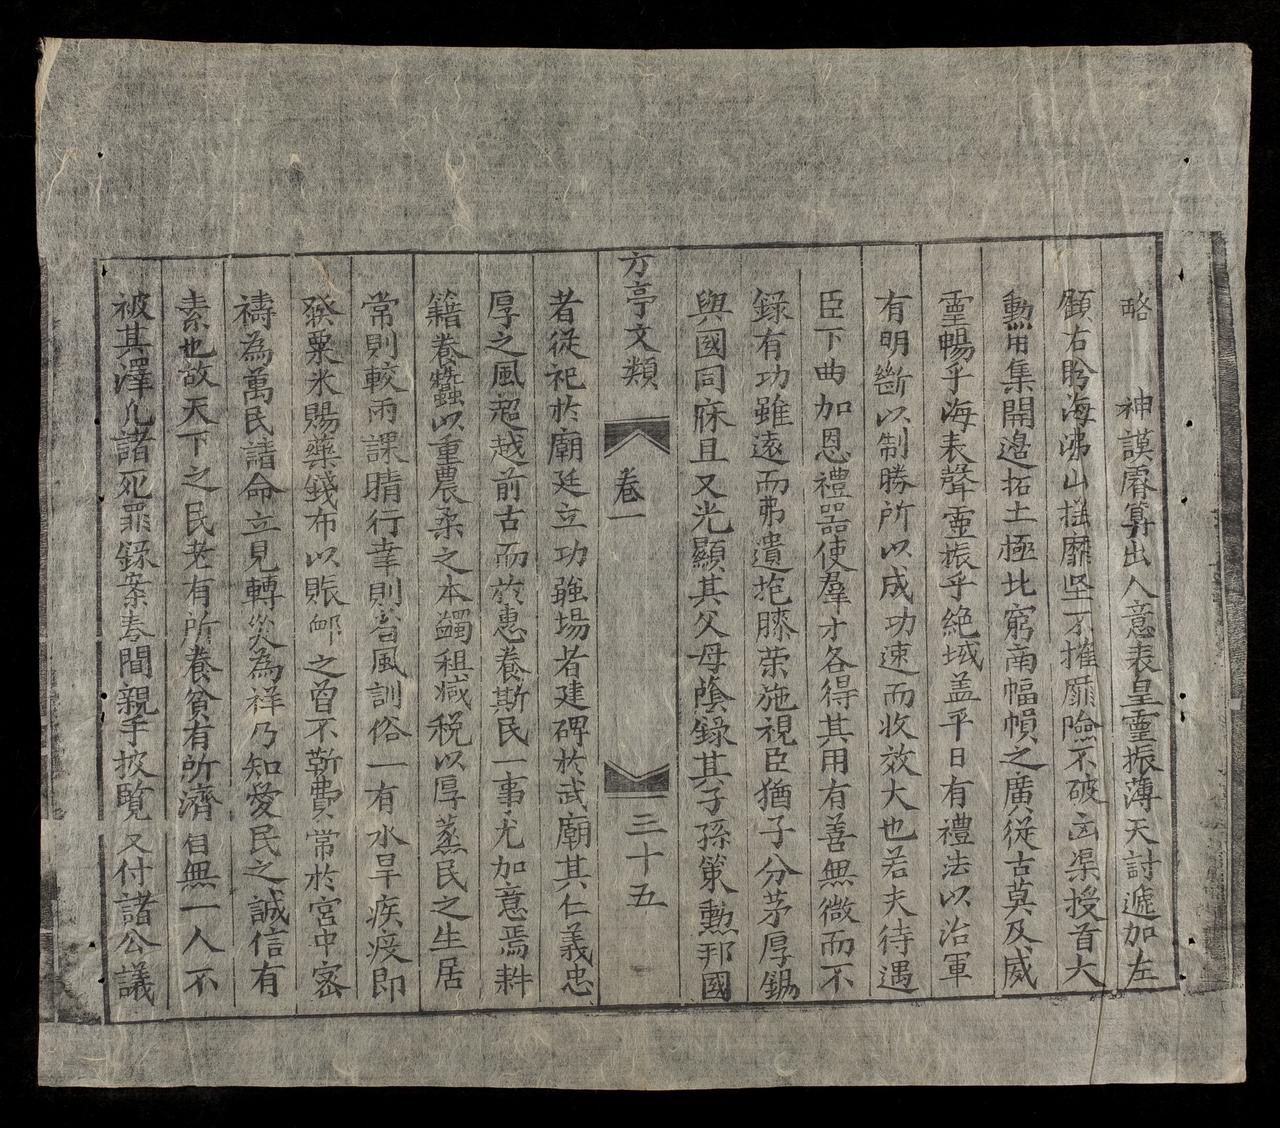 略　神謨睿筭出人意表皇靈振薄天討遞加左
顧右眄海沸山搖靡坚不摧靡險不破凶渠授首大
勳用集開邊拓土極北窮南幅幀之廣從古莫及威
靈暢乎海表聲靈振乎絶域盖平日有禮法以治軍
有明斷以制勝所以成功速而收效大也若夫待遇
臣下曲加恩禮器使羣才各得其用有善無微而不
錄有功雖遠而弗遺抱膝荣施視臣猶子分茅厚錫
與國同庥且又光顯其父母蔭錄其子孫策勳邦國
方亭文類
卷一
三十五
者從祀於廟廷立功強場者建碑於武廟其仁義忠
厚之風超越前古而於惠養斯民一事尤加意焉耕
籍養蠶以重農桑之本蠲租减税以厚蒸民之生居
常則較雨課晴行幸則省風訓俗一有水旱疾疫即
發粟米賜藥錢布以賑邮之曾不靳費常於宮中密
禱為萬民請命立見轉災為祥乃知愛民之誠信有
素也故天下之民老有所養貧有所濟自無一人不
被其澤凡諸死罪錄案春間親手披覽又付諸公議